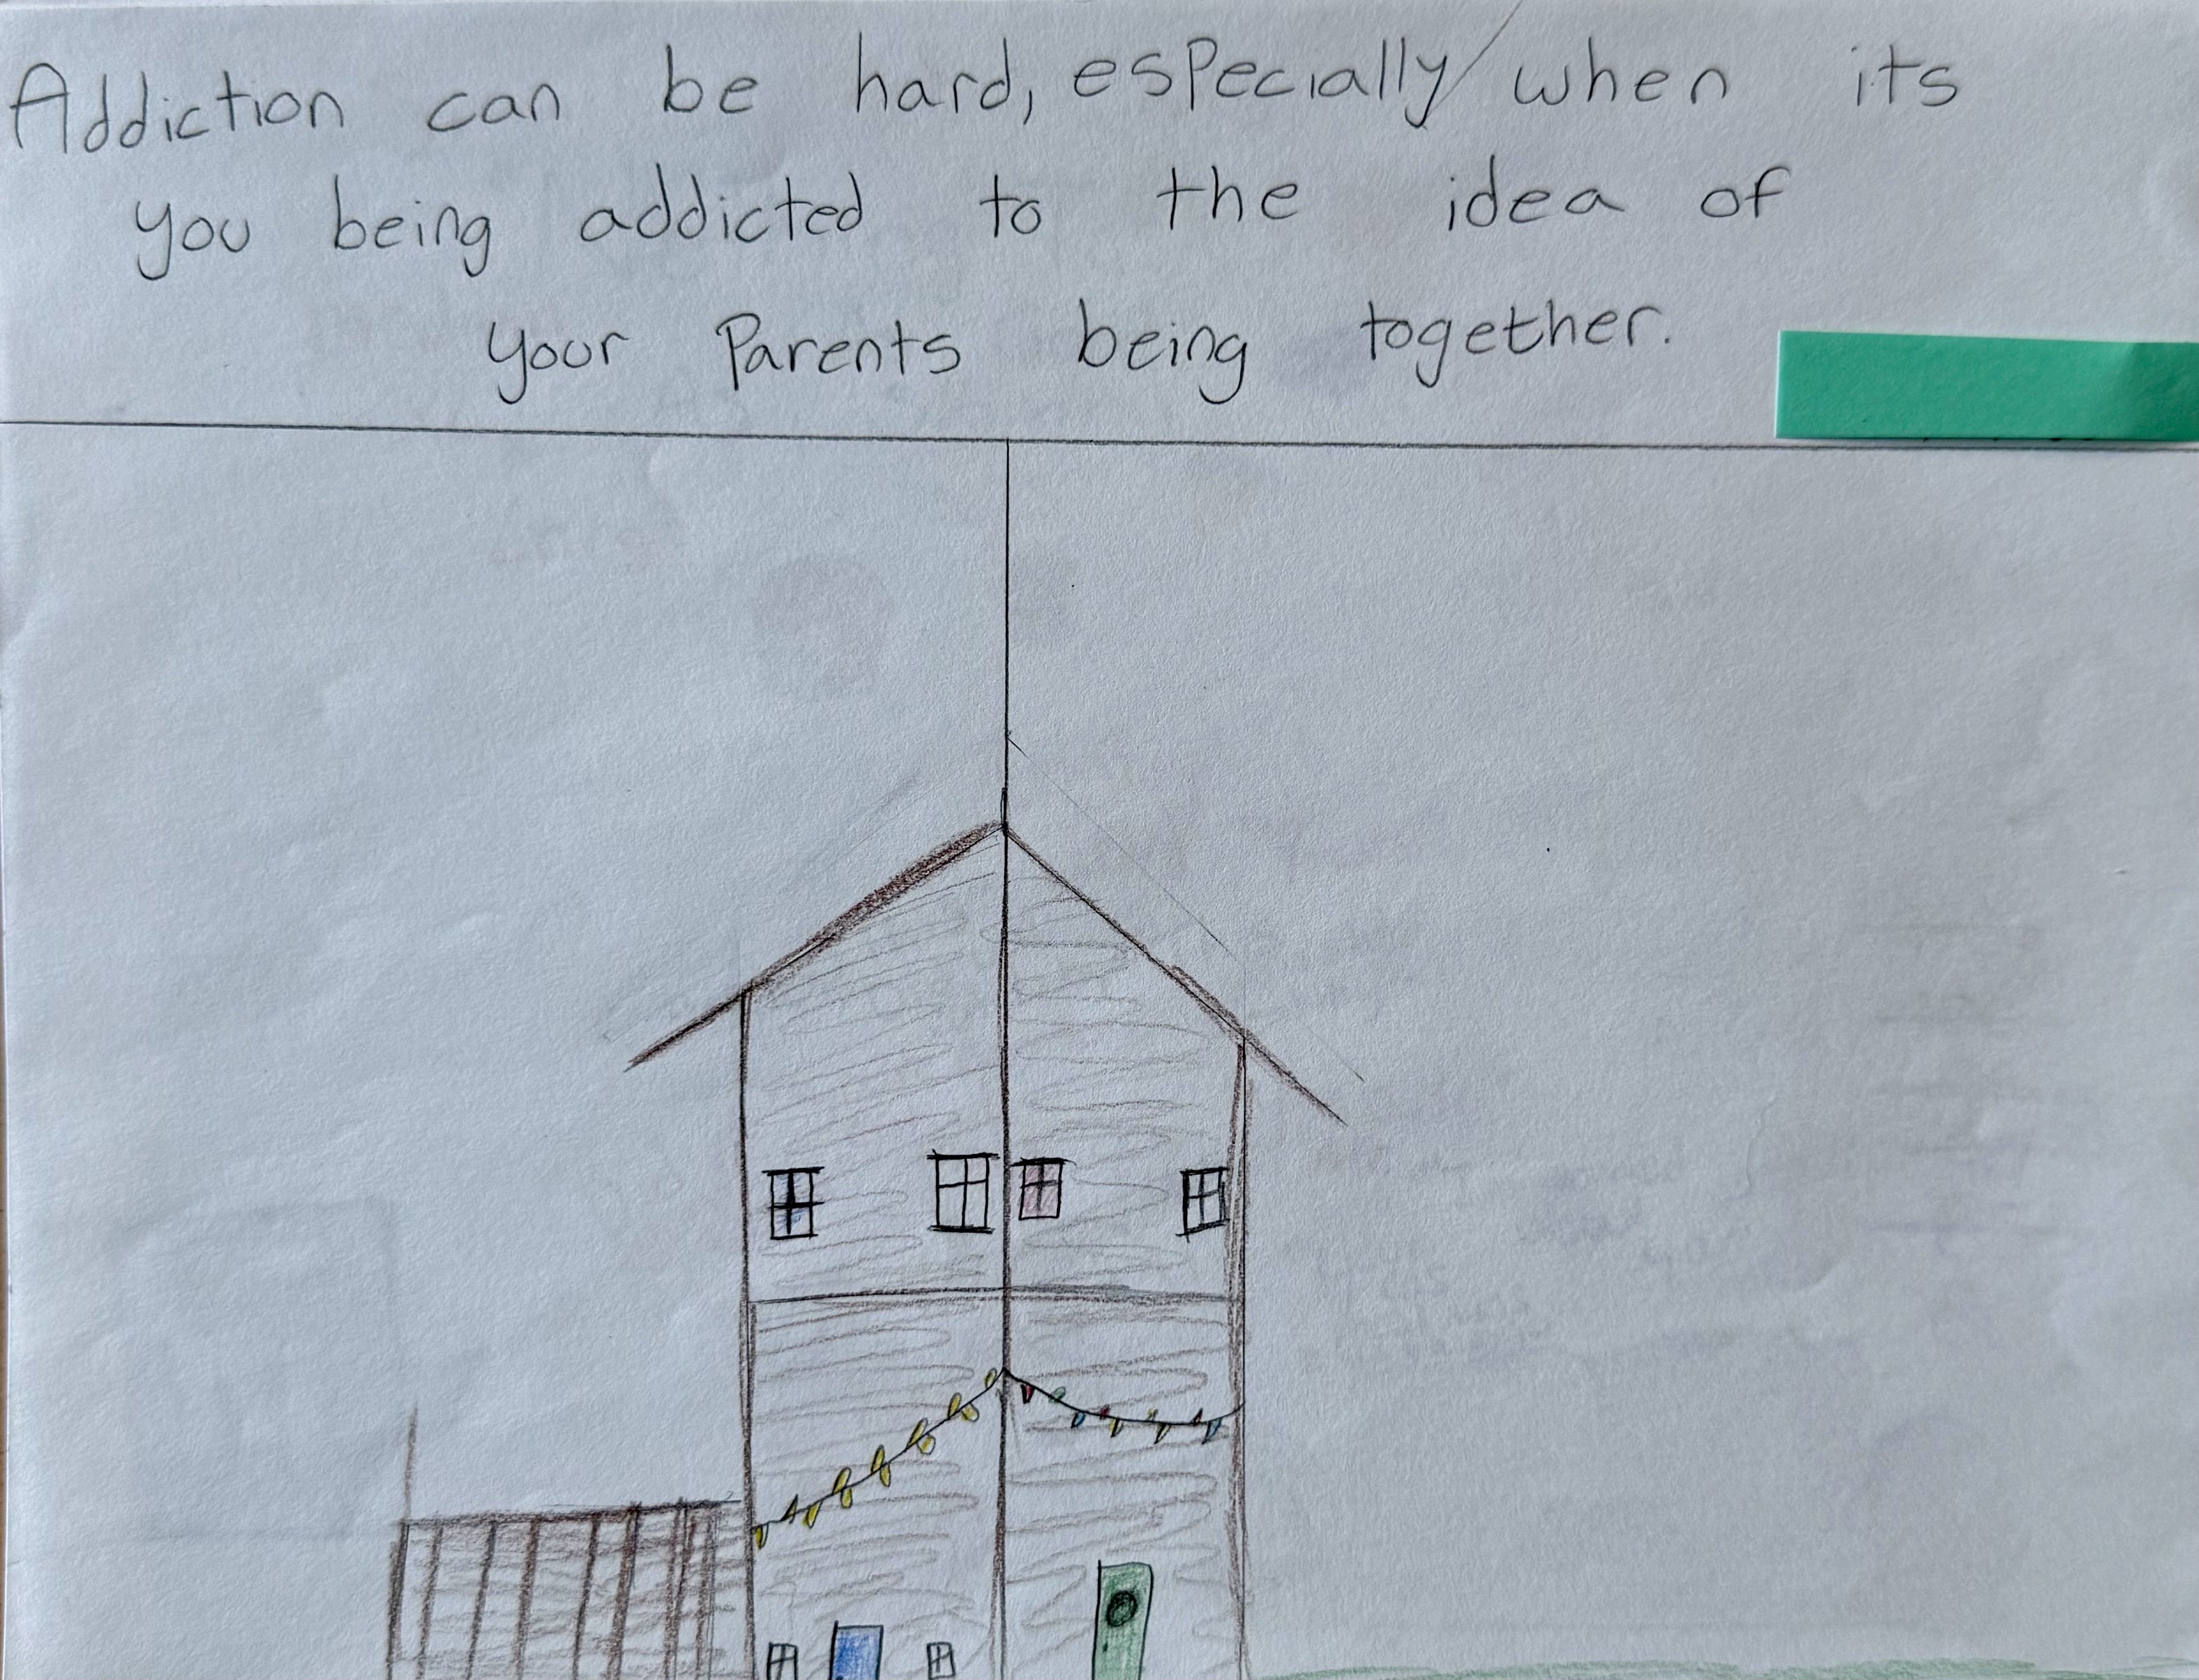 Addiction can be hard, especially when its
you being addicted to the idea of
your Parents being together.